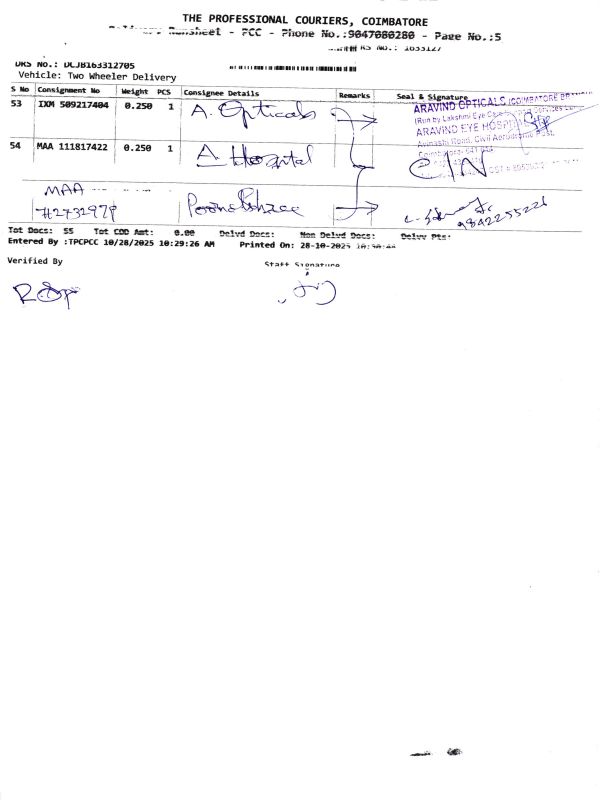 THE PROFESSIONAL COURIERS, COIMBATORE
Delivery Runsheet - PCC - Phone No.:9047080280 - Page No.:5
RS No.: 1633127
DRS No.: DCJB163312705
Vehicle: Two Wheeler Delivery
S No Consignment No Weight PCS Consignee Details Remarks Seal & Signature
53 IXM 509217404 0.250 1 A. Opticals
ARAVIND OPTICALS (COIMBATORE BRANCH)
(Run by Lakshmi Eye Care
ARAVIND EYE HOSPITAL
Avinashi Road, Civil Aerodrome Post,
54 MAA 111817422 0.250 1 A Hospital C/N
MAA
712731979 9842255226
Tot Docs: 55 Tot COD Amt: 0.00 Delvd Docs: Non Delvd Docs: Delvy Pts:
Entered By :TPCPCC 10/28/2025 10:29:26 AM Printed On: 28-10-2025 10:30:44
Verified By Staff Signature